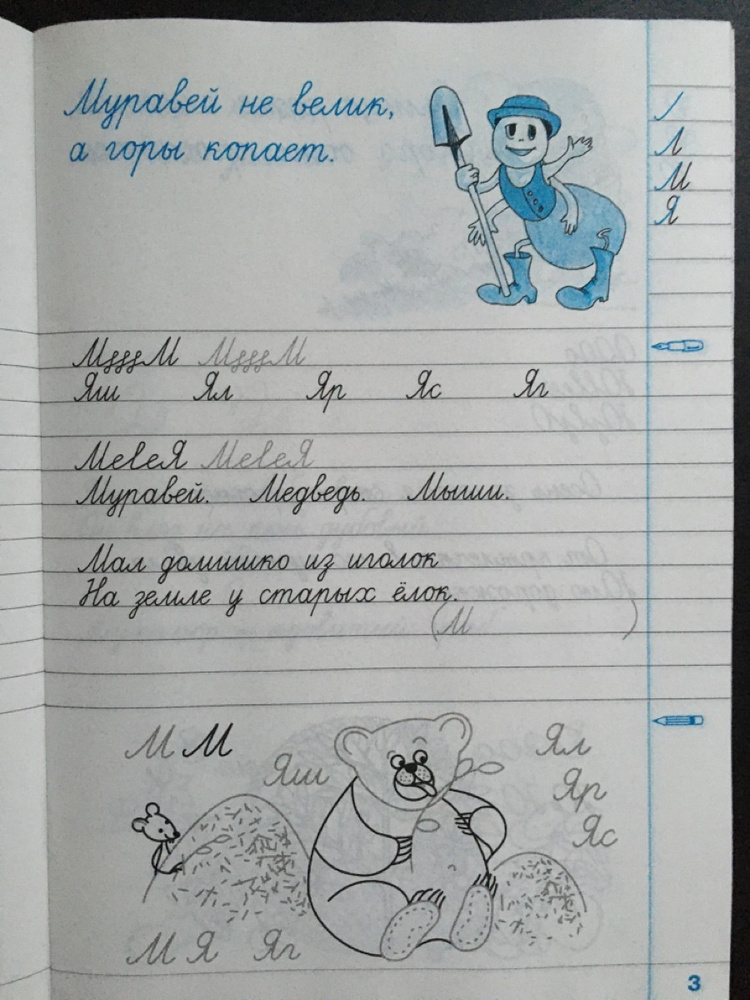 Муравей не велик,
а горы копает.
Л
М
Я
МʒʒʒМ МʒʒʒМ
Яш Ял Яр Яс Яг
МевеЯ МевеЯ
Муравей. Медведь. Мыши.
Мал домишко из иголок
На земле у старых ёлок.
(М )
М М
Яш
Ял
Яр
Яс
М Я Яг
3